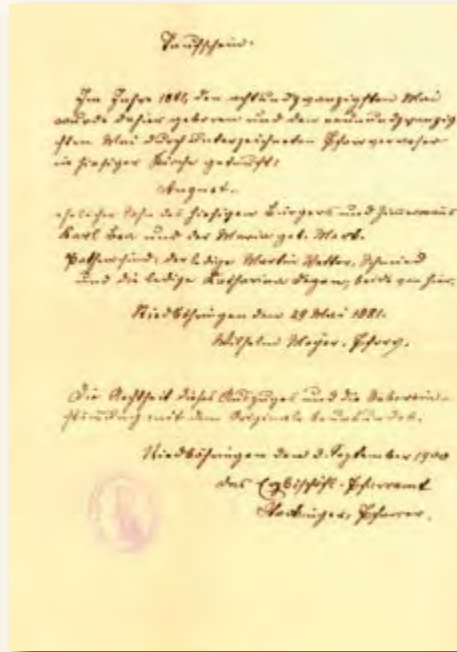 Taufschein.
Im Jahre 1881, den achtundzwanzigsten Mai
wurde dahier geboren und den neunundzwanzig
sten Mai durch Unterzeichneten Pfarrverweser
in hiesiger Kirche getauft:
August.
ehelicher Sohn des hiesigen Bürgers und
Karl Bea und der Maria geb. Mark.
Pathen sind: der ledige Martin Vetter, Schmied
und die ledige Katharina Degen, beide von hier.
Riedböhringen den 29 Mai 1881.
Wilhelm Mayer. Pfarrv.
Die Aechtheit dieses Auszuges und die Ueberein-
stimmung mit dem Originale beurkundet.
Riedböhringen den 3. September 1900
Das Erzbischöfl. Pfarramt
Pfarrer.